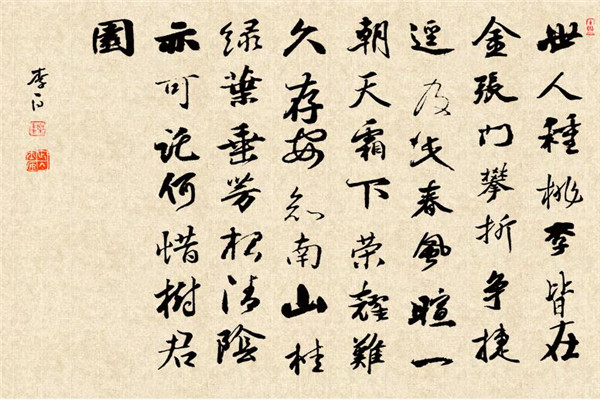 世人種桃李皆在
金張門攀折争捷
逕及此春風暄一
朝天霜下榮耀難
久存安知南山桂
緑葉垂芳根清陰
亦可託何惜樹君
園
李白